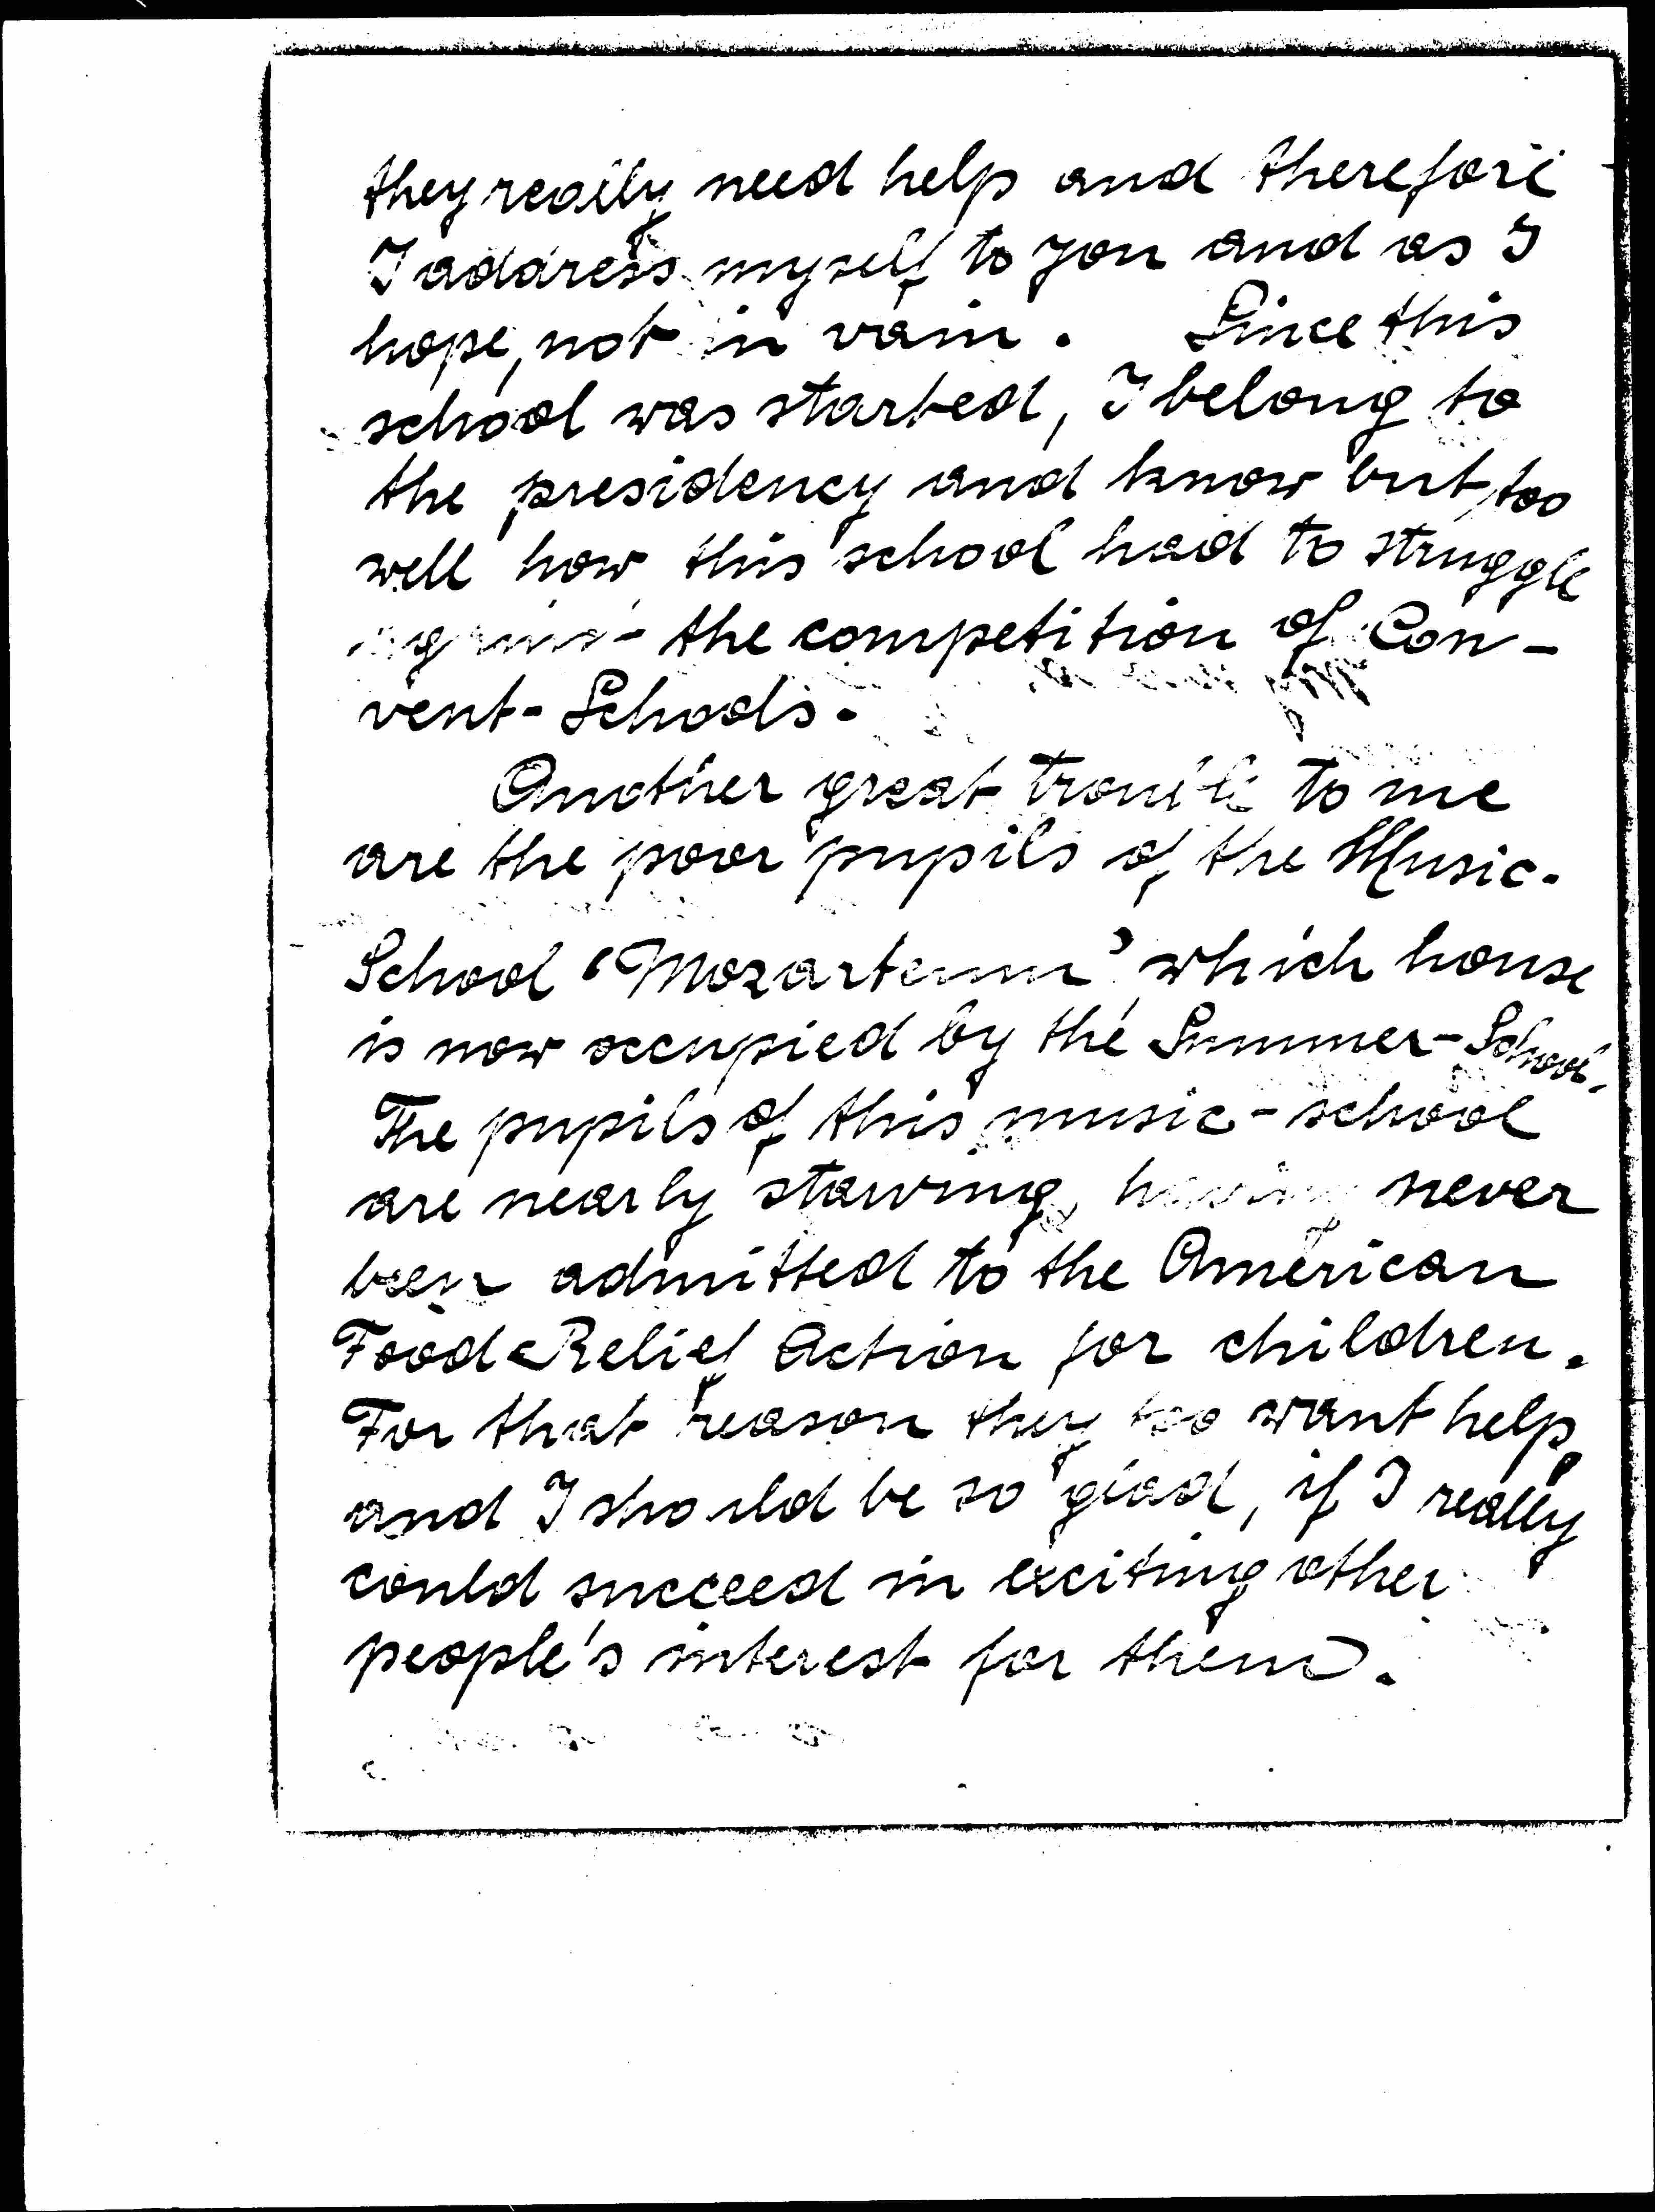 they really need help and therefore
I address myself to you and as I
hope, not in vain. Since this
school was started, I belong to
the presidency and know but too
well how this school had to struggle
against the competition of Con-
vent-Schools.
Another great trouble to me
are the poor pupils of the Music-
School 'Mozarteum' which house
is now occupied by the Summer-School.
The pupils of this music-school
are nearly starving, having never
been admitted to the American
Food Relief Action for children.
For that reason they too want help,
and I should be so glad, if I really
could succeed in exciting other
people's interest for them.